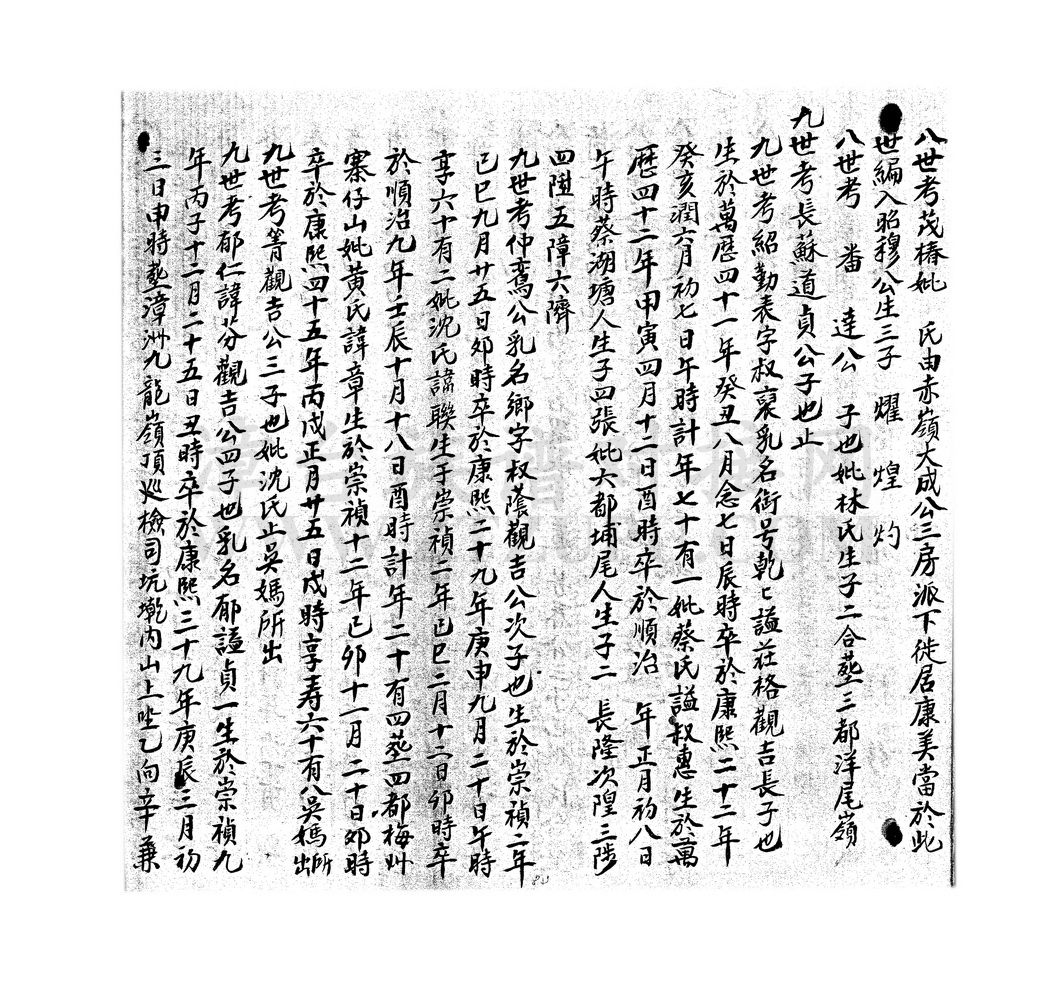 八世考茂椿妣 氏由赤嶺大成公三房派下徙居康美當於此
世編入昭穆公生三子 燿 煌 灼
八世考 番 達公 子也妣林氏生子二合塟三都洋尾嶺
九世考長蘇道貞公子也止
九世考紹勤表字叔裏乳名衙号乾乀謚莊格觀吉長子也
生於萬歷四十一年癸丑八月念七日辰時卒於康熙二十二年
癸亥潤六月初七日午時計年七十有一妣蔡氏謚叔惠生於萬
歷四十二年甲寅四月十二日酉時卒於順治 年正月初八日
午時蔡湖塘人生子四張妣大都埔尾人生子二 長隆次隍三陟
四陞五障六隮
九世考仲鸞公乳名鄉字叔蔭觀吉公次子也生於崇禎二年
己巳九月廿五日卯時卒於康熙二十九年庚申九月二十日午時
享六十有二妣沈氏諱聯生于崇禎二年己巳二月十二日卯時卒
於順治九年壬辰十月十八日酉時計年二十有四塟四都梅州
寨仔山妣黄氏諱章生於崇禎十二年己卯十一月二十日卯時
卒於康熙四十五年丙戌正月廿五日戌時享寿六十有八吳媽所出
九世考箐觀吉公三子也妣沈氏止吳媽所出
九世考郁仁諱芬觀吉公四子也乳名郁謚貞一生於崇禎九
年丙子十二月二十五日丑時卒於康熙三十九年庚辰三月初
三日申時塟漳洲九龍嶺頂巡檢司坑墘內山上坐乙向辛兼